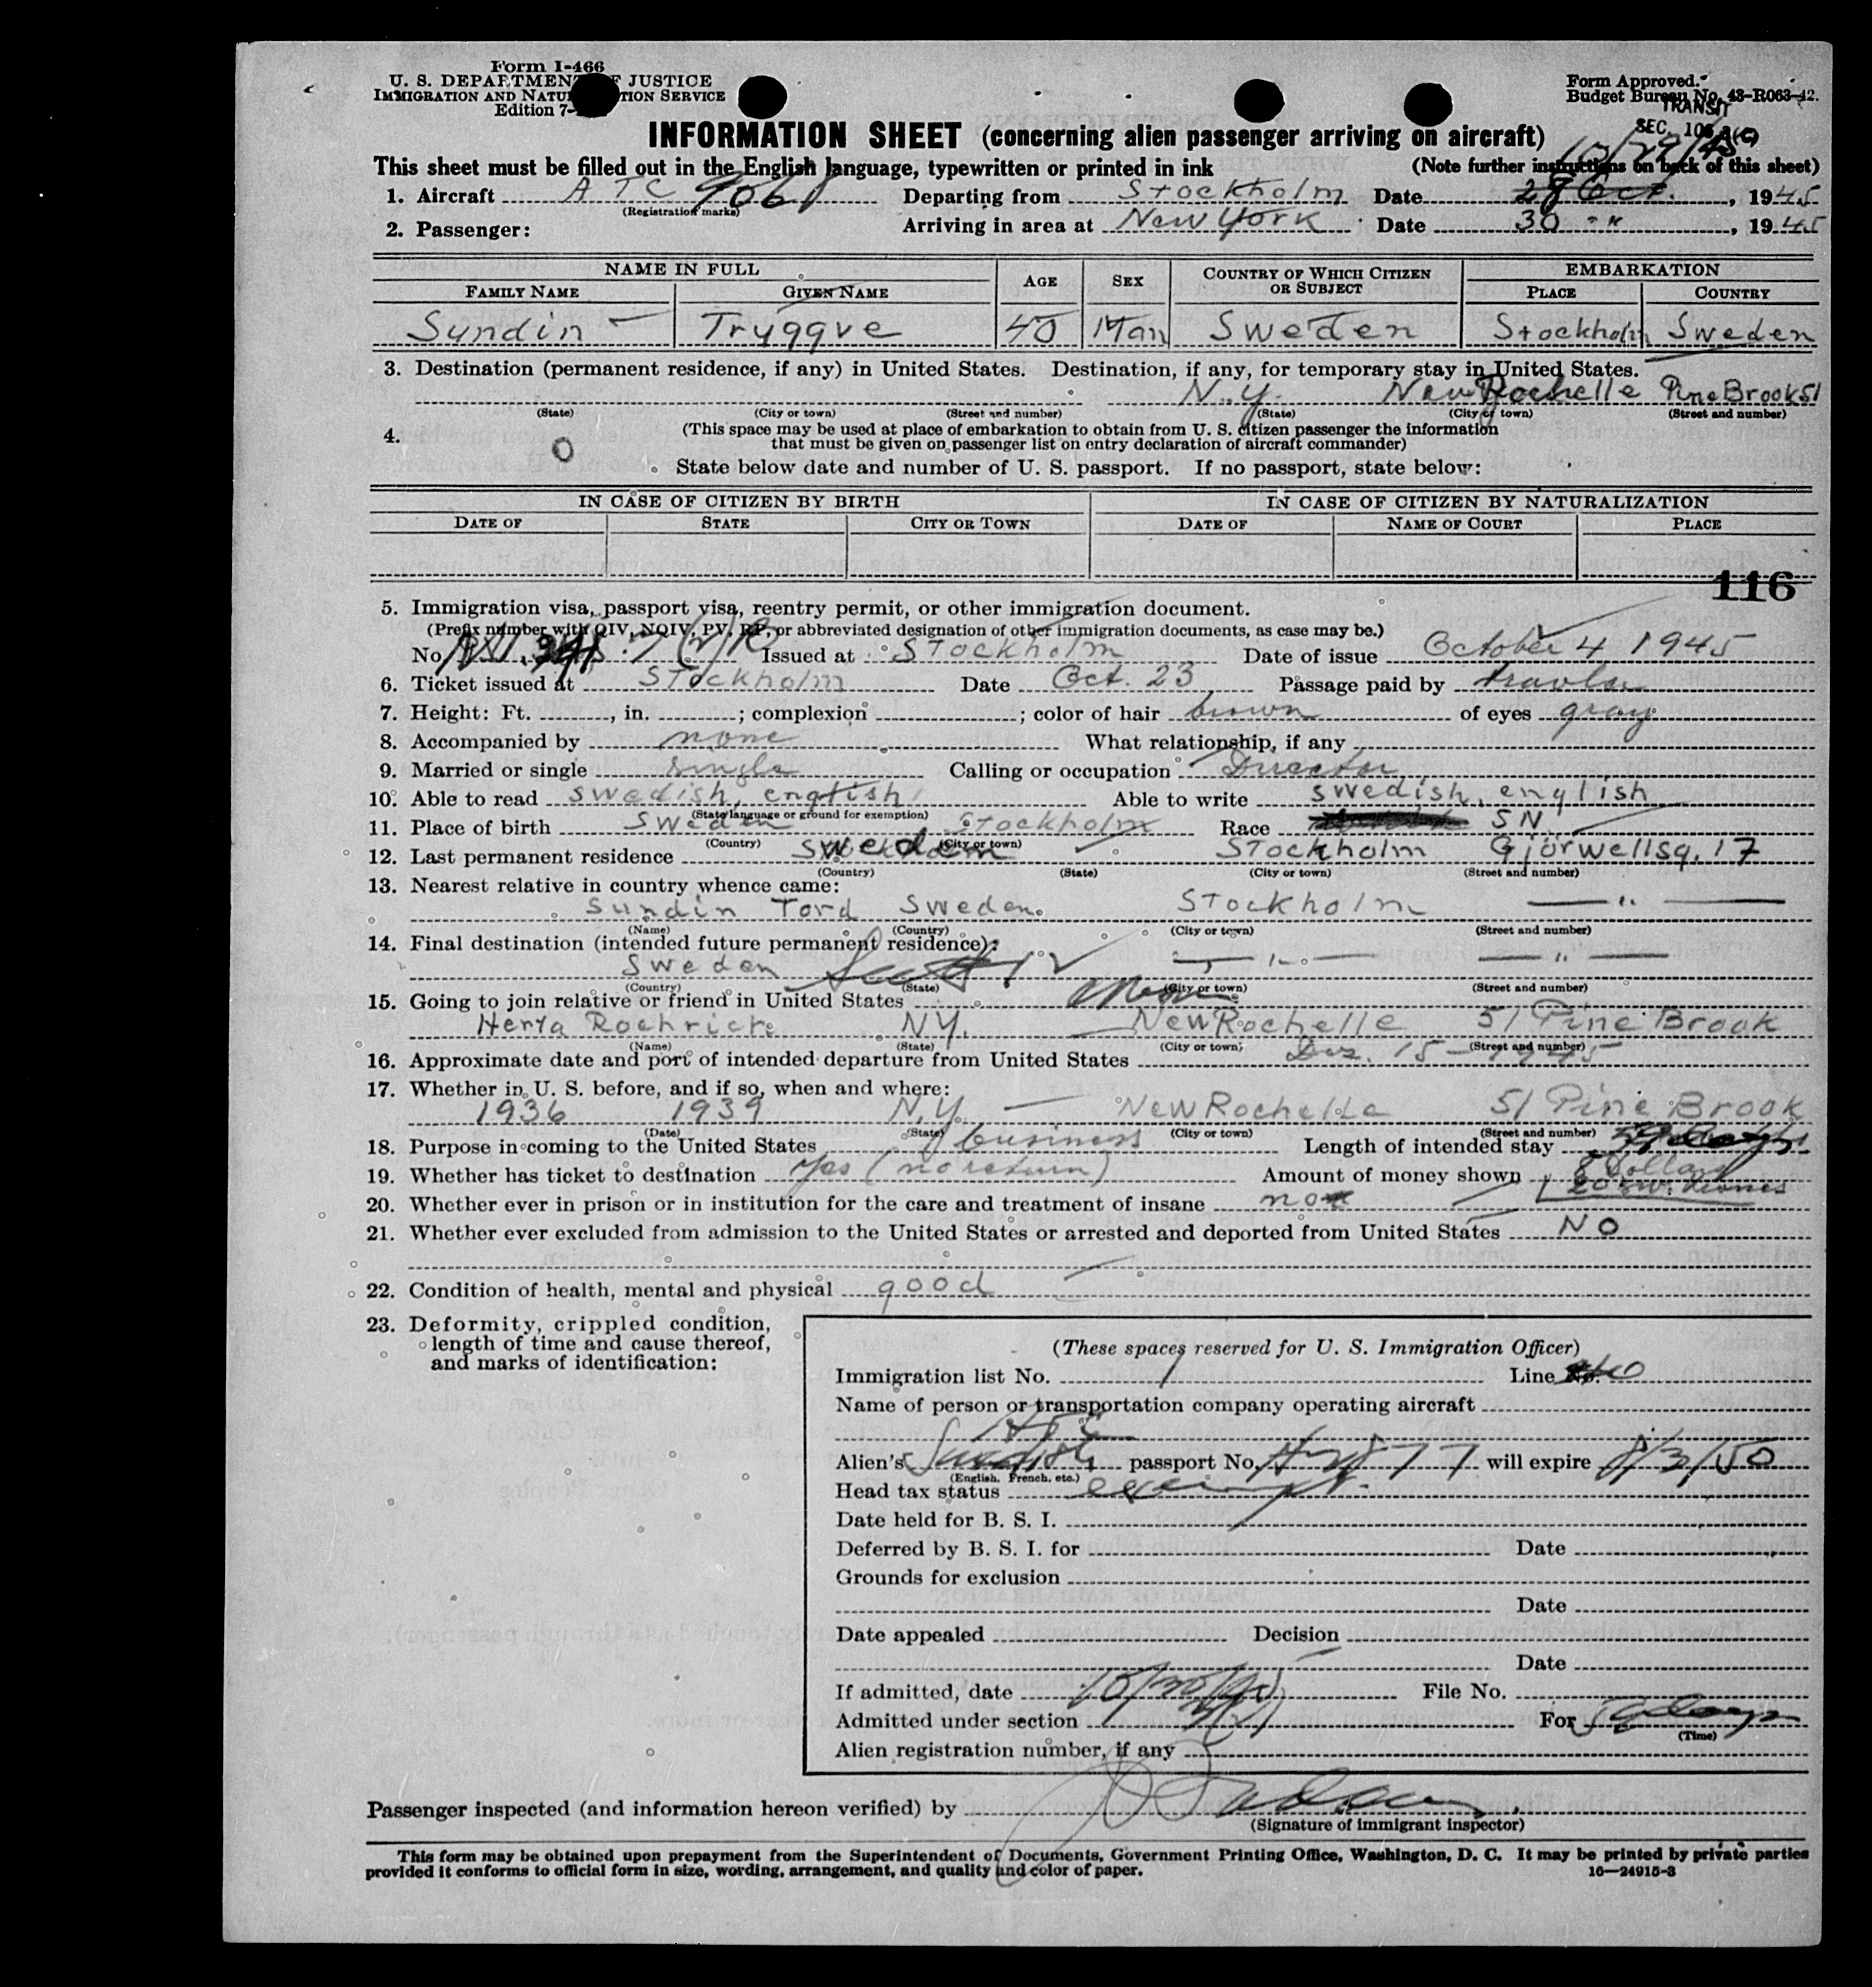 Form I-466
U. S. DEPARTMENT OF JUSTICE
IMMIGRATION AND NATURALIZATION SERVICE
Edition 7-
Form Approved.
Budget Bureau No. 43-R063-42.
TRANSIT
SEC.
INFORMATION SHEET (concerning alien passenger arriving on aircraft)
10/29/45
This sheet must be filled out in the English language, typewritten or printed in ink (Note further instructions on back of this sheet)
1. Aircraft ATC 9068 Departing from Stockholm Date 28 Oct. , 1945
(Registration marks)
2. Passenger: Arriving in area at New York Date 30 " , 1945
NAME IN FULL AGE SEX COUNTRY OF WHICH CITIZEN OR SUBJECT EMBARKATION
FAMILY NAME GIVEN NAME PLACE COUNTRY
Sundin Tryggve 40 Man Sweden Stockholm Sweden
3. Destination (permanent residence, if any) in United States. Destination, if any, for temporary stay in United States.
N.Y. New Rochelle Pine Brook 51
(State) (City or town) (Street and number) (State) (City or town) (Street and number)
4. (This space may be used at place of embarkation to obtain from U. S. citizen passenger the information
that must be given on passenger list on entry declaration of aircraft commander)
State below date and number of U. S. passport. If no passport, state below:
IN CASE OF CITIZEN BY BIRTH IN CASE OF CITIZEN BY NATURALIZATION
DATE OF STATE CITY OR TOWN DATE OF NAME OF COURT PLACE
116
5. Immigration visa, passport visa, reentry permit, or other immigration document.
(Prefix number with QIV, NQIV, PV, RP, or abbreviated designation of other immigration documents, as case may be.)
No. Issued at Stockholm Date of issue October 4 1945
6. Ticket issued at Stockholm Date Oct. 23 Passage paid by travler
7. Height: Ft. , in. ; complexion ; color of hair brown of eyes gray
8. Accompanied by none What relationship, if any
9. Married or single single Calling or occupation Director
10. Able to read swedish, english Able to write swedish, english
(State language or ground for exemption)
11. Place of birth Sweden Stockholm Race SN
(Country) (City or town)
12. Last permanent residence Sweden Stockholm Gjörwellsg. 17
(Country) (State) (City or town) (Street and number)
13. Nearest relative in country whence came:
Sundin Tord Sweden Stockholm — " —
(Name) (Country) (City or town) (Street and number)
14. Final destination (intended future permanent residence):
Sweden — " — — " —
(Country) (State) (City or town) (Street and number)
15. Going to join relative or friend in United States
Herta N.Y. New Rochelle 51 Pine Brook
(Name) (State) (City or town) (Street and number)
16. Approximate date and port of intended departure from United States Dec. 15 - 1945
17. Whether in U. S. before, and if so, when and where:
1936 1939 N.Y. — New Rochelle 51 Pine Brook
(Date) (State) (City or town) (Street and number)
18. Purpose in coming to the United States business Length of intended stay
19. Whether has ticket to destination yes (no return) Amount of money shown 8 Dollars
20 sw. kronor
20. Whether ever in prison or in institution for the care and treatment of insane no
21. Whether ever excluded from admission to the United States or arrested and deported from United States NO
22. Condition of health, mental and physical good
23. Deformity, crippled condition,
length of time and cause thereof,
and marks of identification:
(These spaces reserved for U. S. Immigration Officer)
Immigration list No. 1 Line No.
Name of person or transportation company operating aircraft
ATC
Alien's Swedish passport No. will expire 8/3/50
(English, French, etc.)
Head tax status exempt.
Date held for B. S. I.
Deferred by B. S. I. for Date
Grounds for exclusion
Date
Date appealed Decision
Date
If admitted, date 10/30/45 File No.
Admitted under section 3(2) For days
(Time)
Alien registration number, if any
Passenger inspected (and information hereon verified) by
(Signature of immigrant inspector)
This form may be obtained upon prepayment from the Superintendent of Documents, Government Printing Office, Washington, D. C. It may be printed by private parties
provided it conforms to official form in size, wording, arrangement, and quality and color of paper. 16—24915-3